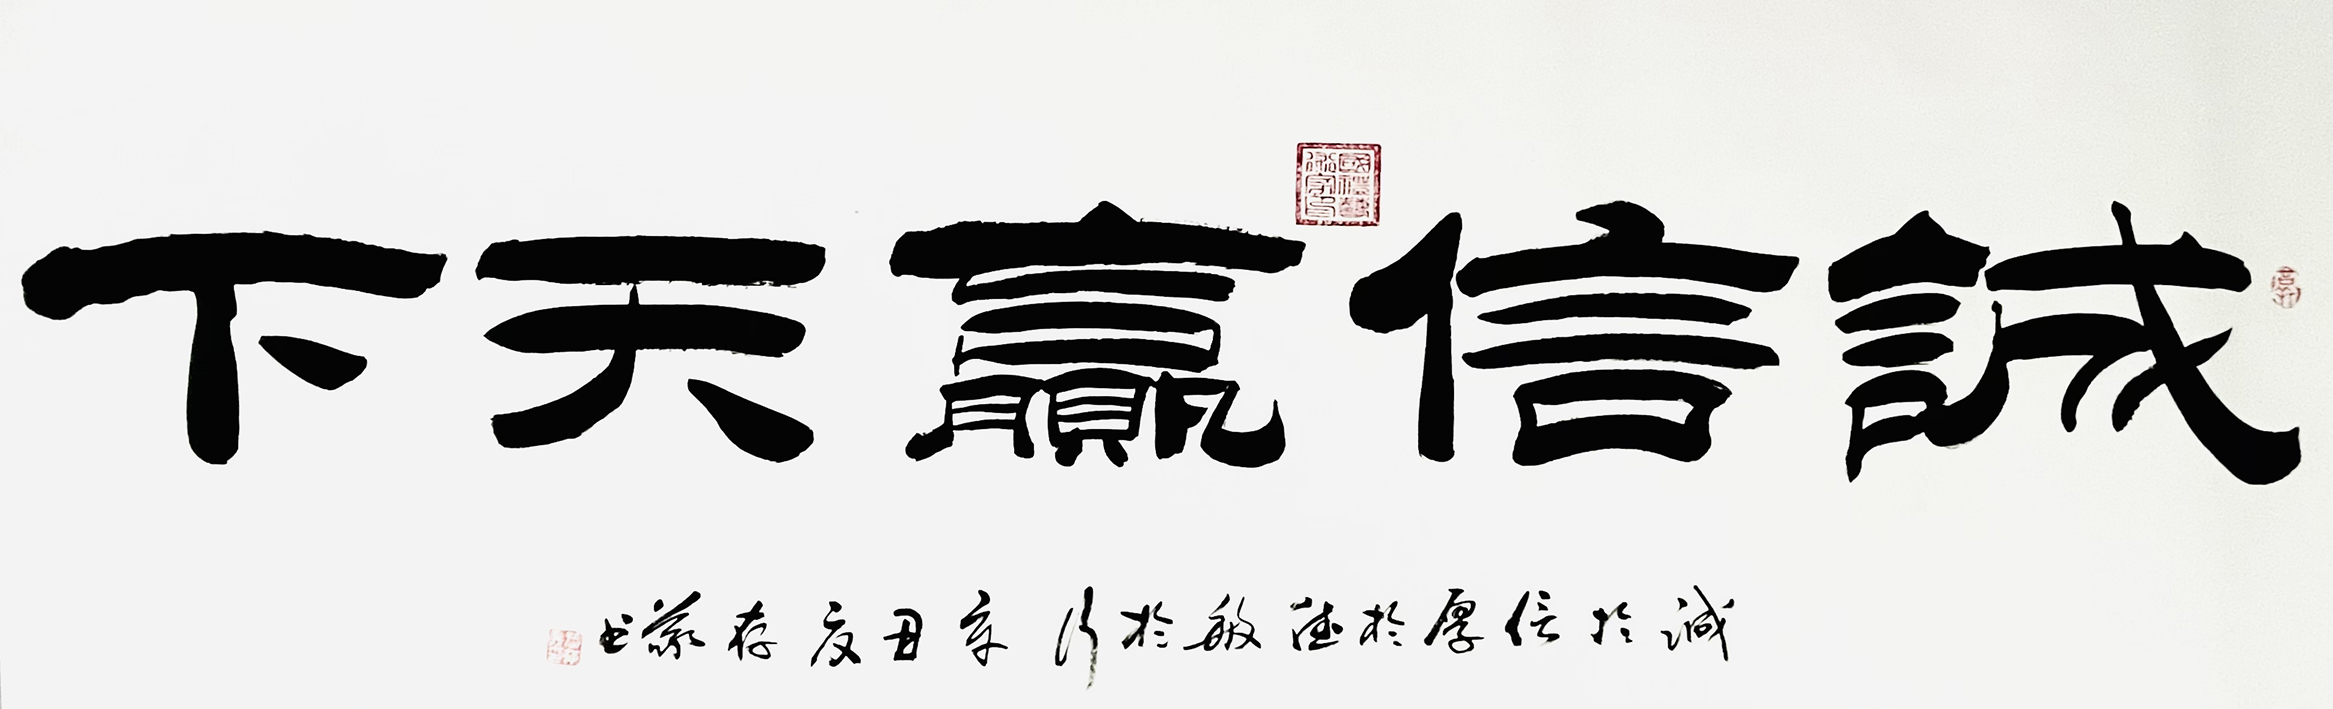 誠信贏天下
诚於信厚於德敏於行辛丑夏存義书